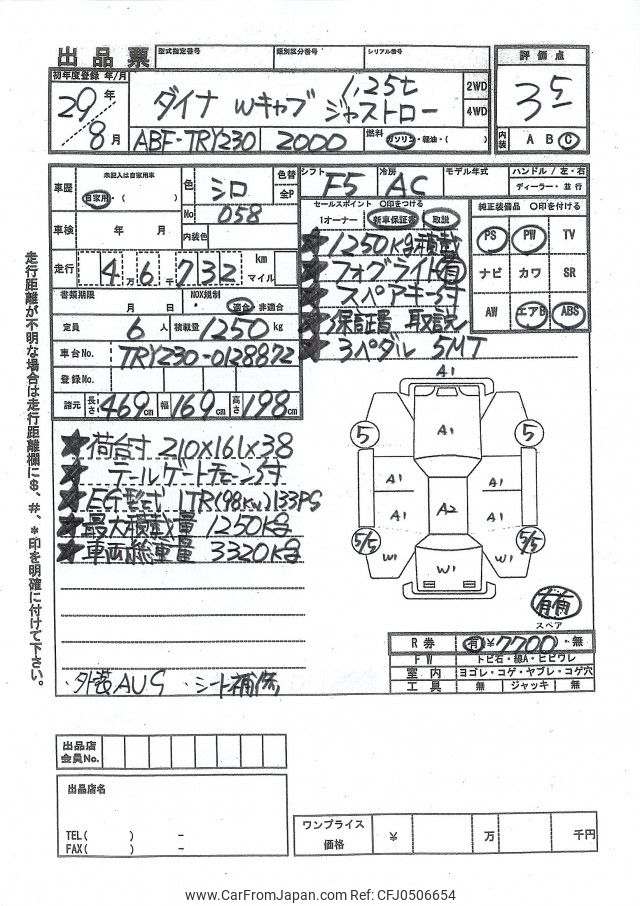 出品票 型式指定番号 類別区分番号 シリアル番号
評価点
3 5
内装 A B C
初年度登録 年/月
29年
8月
1.25t
ダイナ Wキャブ ジャストロー
2WD
4WD
ABF-TRY230 2000 燃料 ガソリン・軽油・( )
車歴 未記入は自家用車
自家用・( )
色 シロ
色替
全P
No 058
内装色
車検 年 月
走行 4万6千732 km
マイル
書類期限 月 日
NOX規制 適合・非適合
定員 6人 積載量 1250 kg
車台No. TRY230-0128872
登録No.
諸元 長さ 469cm 幅 169cm 高さ 198cm
シフト F5 冷房 AC モデル年式 ハンドル/左・右
ディーラー・並行
セールスポイント 〇印をつける
1オーナー 新車保証書 取説
★1250kg積載
★フォグライト有
★スペアキー付
★保証書 取説
★3ペダル 5MT
純正装備品 〇印を付ける
PS PW TV
ナビ カワ SR
AW エアB ABS
走行距離が不明な場合は走行距離欄に$、#、*印を明確に付けて下さい。
★荷台寸 210×161×38
★テールゲートチェーン付
★EG型式 1TR(98kw)133PS
★最大積載量 1250kg
★車両総重量 3320kg
・外装AUG ・シート補修
A1
5 A1 5
A1 A1
A1 A2 A1
5/5 5/5
W1 W1 W1
有有
スペア
R券 有 ¥7700・無
FW トビ石・線A・ヒビワレ
室内 ヨゴレ・コゲ・ヤブレ・コゲ穴
工具 無 ジャッキ 無
出品店
会員No.
出品店名
TEL( ) -
FAX( ) -
ワンプライス
価格 ¥ 万 千円
www.CarFromJapan.com Ref: CFJ0506654